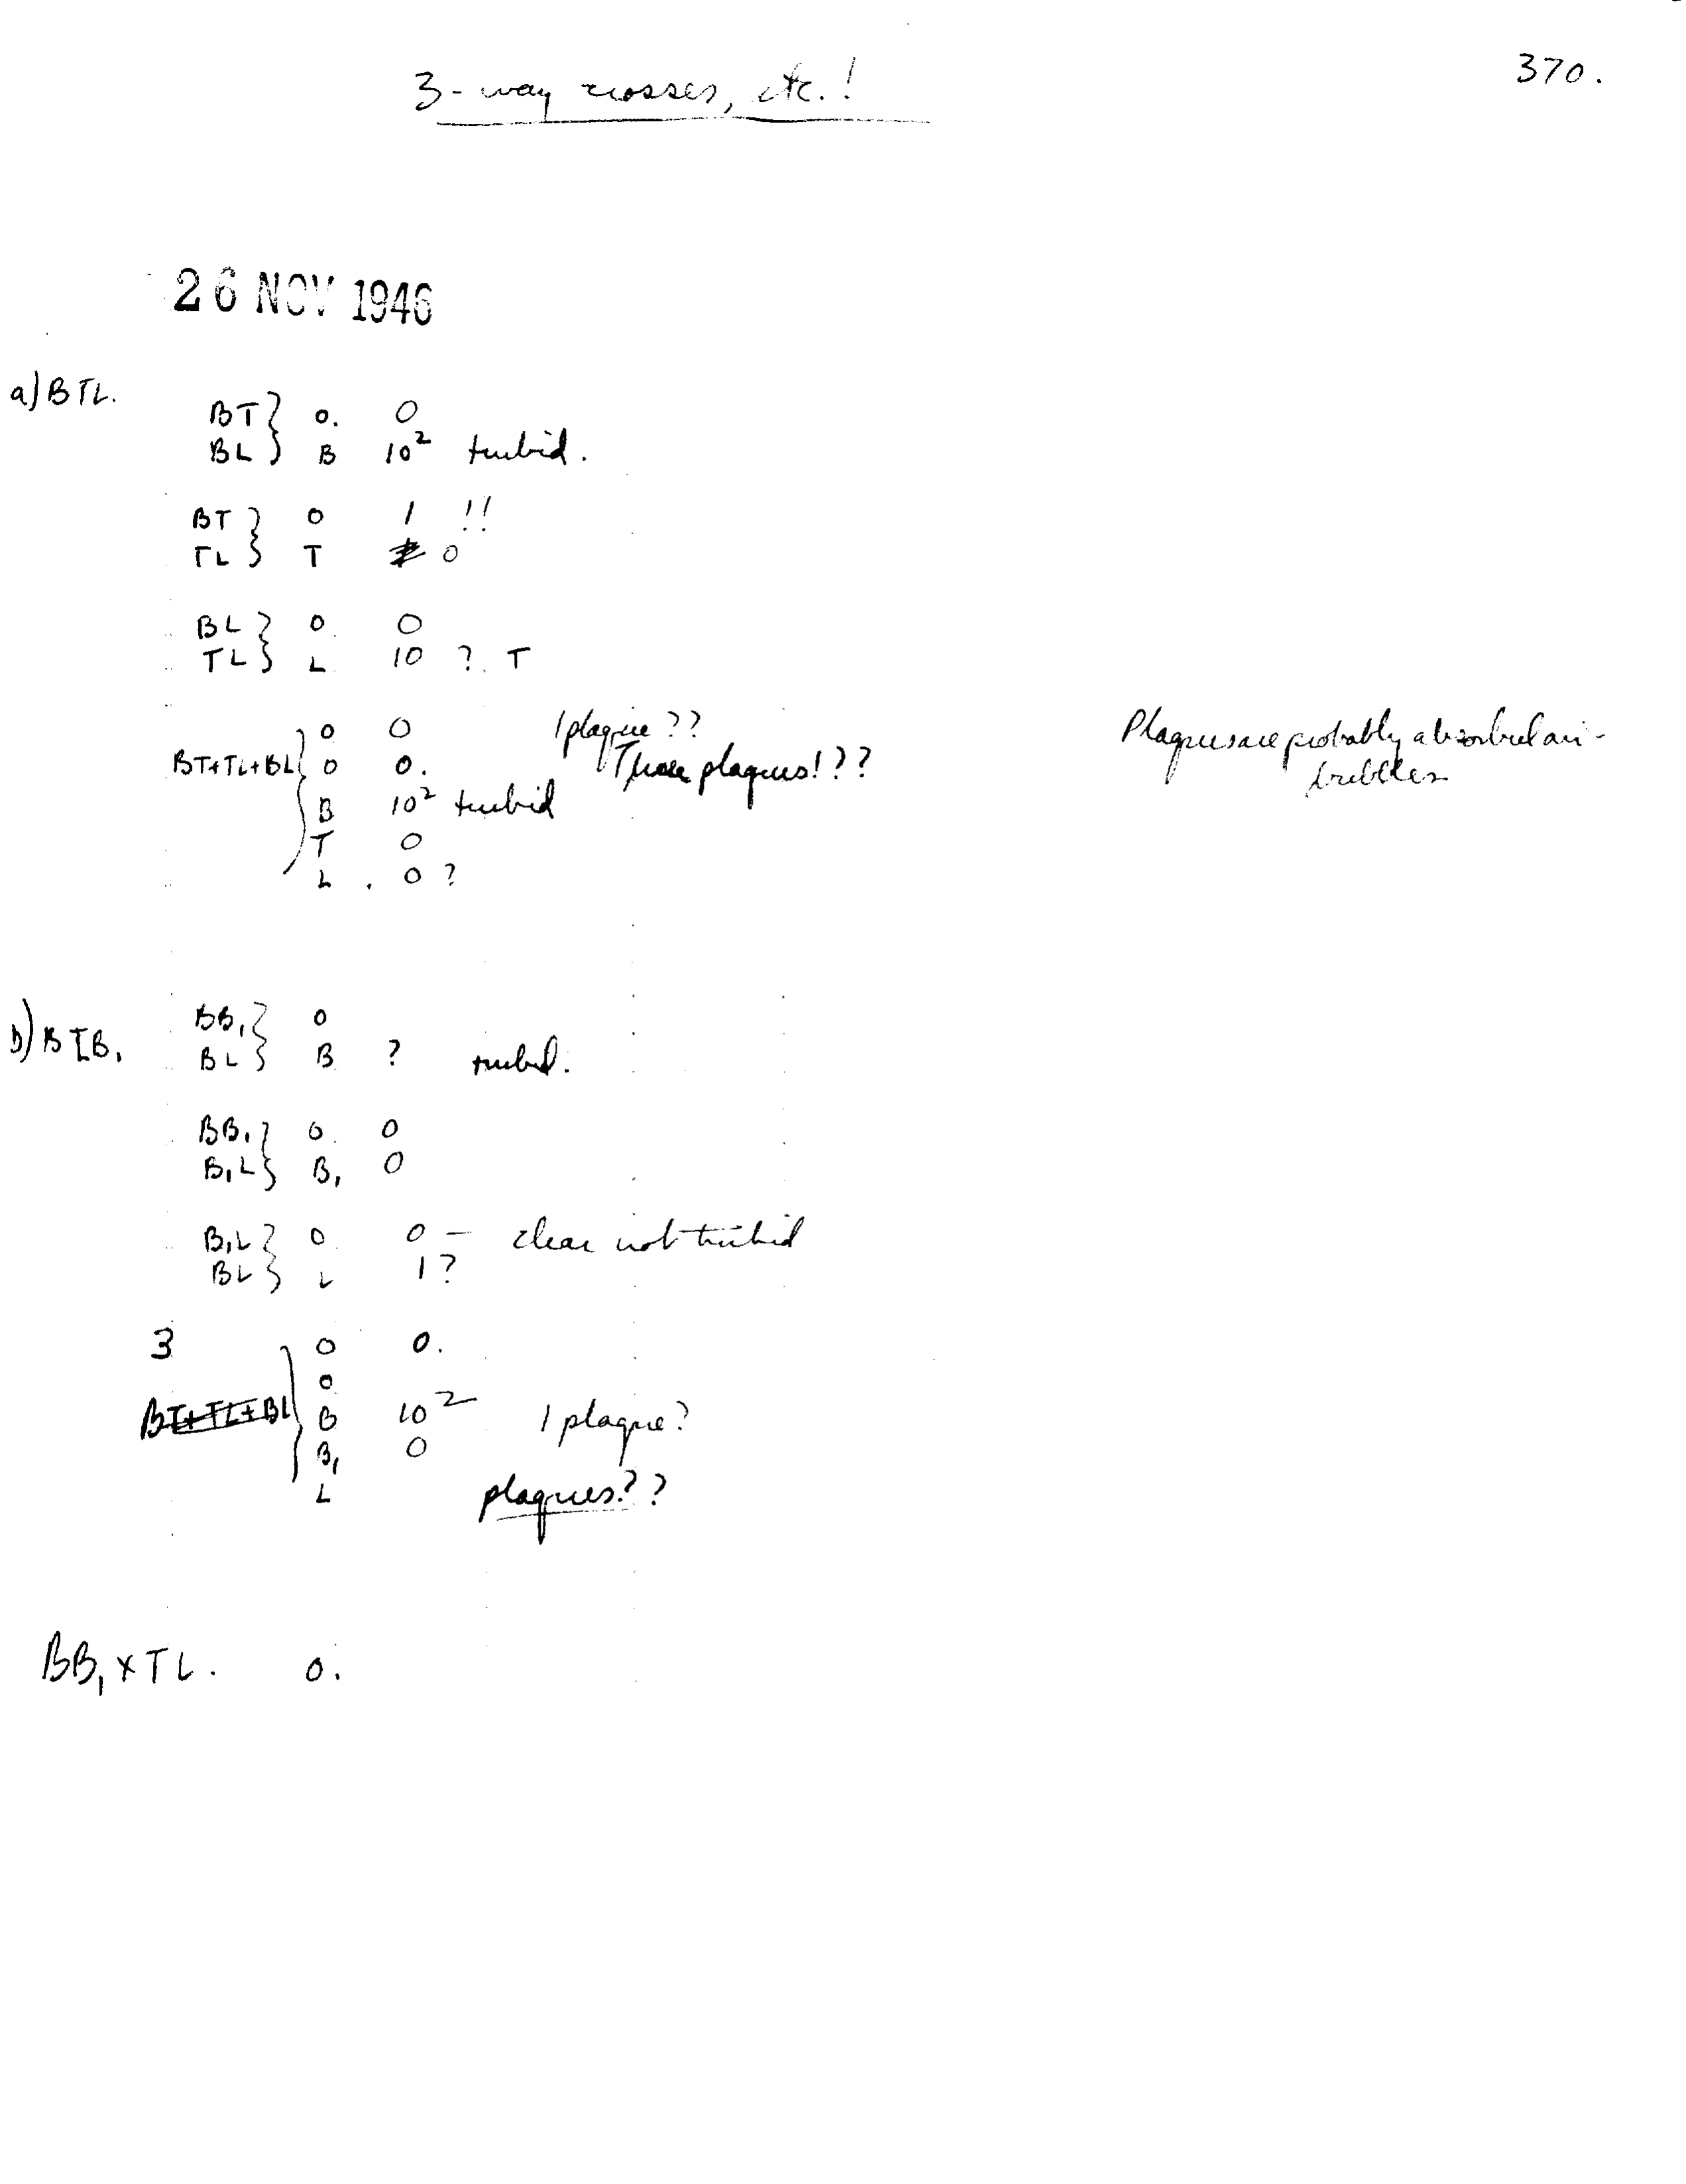 370.
3-way crosses, etc.!
26 NOV 1946
a) BTL.
BT } 0. 0
BL } B 10² turbid.
BT } 0 1 !!
TL } T 0
BL } 0. 0
TL } L 10 ? T
0 0 1 plaque ??
BT+TL+BL } 0 0. plaques!??
B 10² turbid
T 0
L . 0 ?
Plaques are probably absorbed air-
bubbles
b) B L B₁
BB₁ } 0
BL } B ? turbid.
BB₁ } 0. 0
B₁L } B₁ 0
B₁L } 0. 0 — clear not turbid
BL } L 1?
3 0 0.
0
BT+TL+BL } B 10² 1 plaque?
B₁ 0
L plaques??
BB₁ × TL. 0.